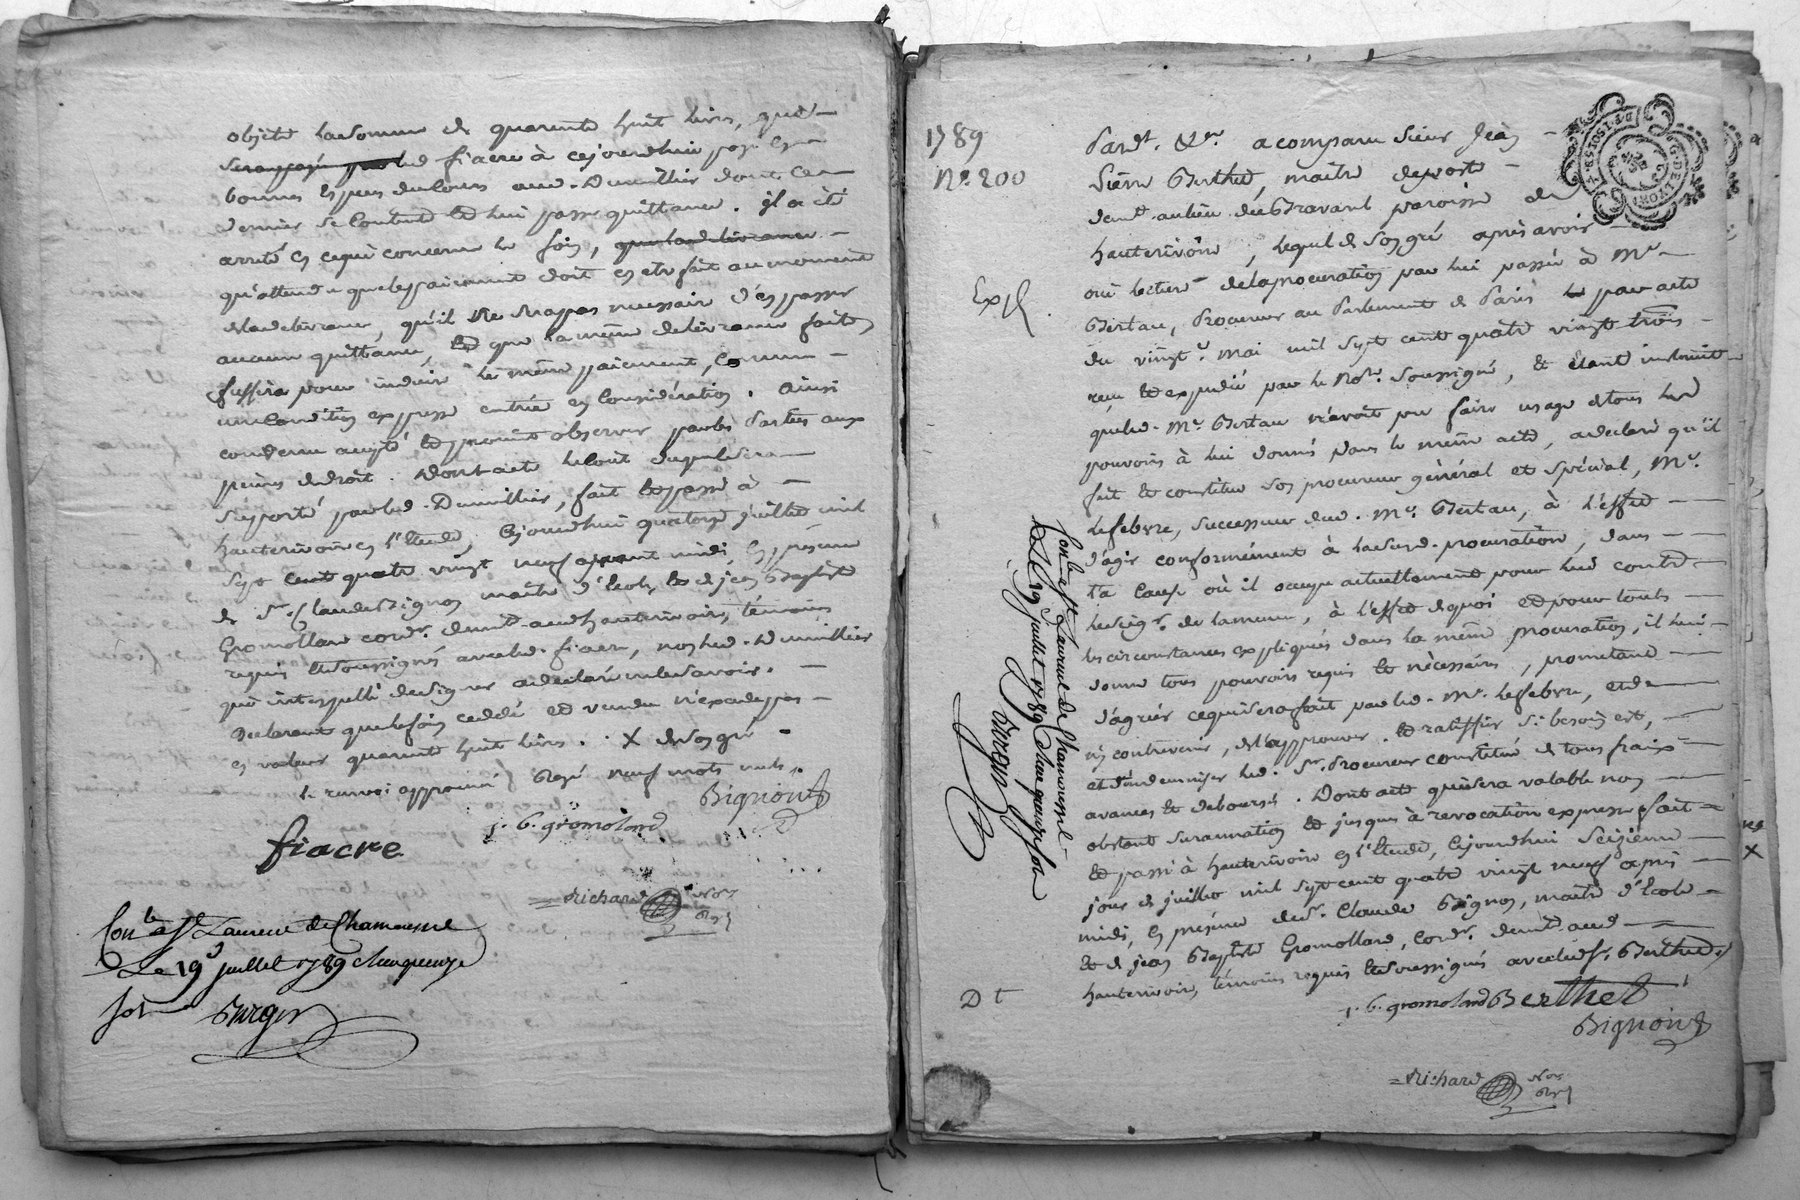 objets la somme de quarante huit livres, que
led fiacre à cejourdhui payé en
bonnes espèces du cours aud. Dumillier dont ce
dernier se contente et lui passe quittance. il a été
arrêté en ce qui concerne le foin,
qu'attendu que le paiement doit en etre fait au moment
de la délivrance, qu'il ne sera pas necessaire d'en passer
aucune quittance, et que la même délivrance faite
suffira pour induire le même paiement, comme
une condition expresse entrée en considération. ainsi
convenu accepté et promis observer par les parties aux
peines de droit. Dont acte le coût du présent sera
supporté par led. Dumillier, fait et passé à
hauterivoire en l'étude, cejourdhui quatorze juillet mil
sept cent quatre vingt neuf avant midi, en présence
de Sr. Claude Bignon maître d'école, et de jean Baptiste
Gromollard cordr. demt. aud hauterivoire, témoins
requis et soussignés avec led. fiacre, non led. Dumillier
qui interpellé de signer a déclaré ne le savoir.
Déclarant que le foin ceddé et vendu n'excede pas
en valeur quarante huit livres. X de son gré
le renvoi approuvé Rayé neuf mots nuls.
Bignon
j. b. gromolard
fiacre
Richard Nore
Royl
Conlé a St Laurent de Chamousset
Le 19 juillet 1789
Burgin
1789
No. 200
Pardt. &c. a comparu Sieur Jean
Pierre Berthet, maître de poste
demt. au lieu du Bravant paroisse de
hauterivoire, lequel de son gré après avoir
oui lecture de la procuration par lui passée à Me.
Bertau, Procureur au Parlement de Paris par acte
du vingt. mai mil sept cent quatre vingt trois
reçu et expédié par le Nore. Soussigné, et étant instruit
que led. Me. Bertau n'avoit pu faire usage de tous les
pouvoirs à lui donnés dans le même acte, a déclaré qu'il
fait et constitue son procureur général et spécial, Me.
Lefebvre, successeur dud. Me. Bertau, à l'effet
d'agir conformément à la susd. procuration, dans
la cause où il occupe actuellement pour lui contre
le seigr. de lamure, à l'effet de quoi et pour toutes
les circonstances expliquées dans la même procuration, il lui
donne tous pouvoirs requis et nécessaires, promettant
d'agréer ce qui sera fait par led. Me. Lefebvre, et de
n'y contrevenir, de l'approuver et ratiffier si besoin est,
et d'indemniser led. Sr. Procureur constitué de tous fraix
avances et déboursés. Dont acte qui sera valable non
obstant surannation et jusques à revocation expresse fait
et passé à hauterivoire en l'étude, cejourdhui seizieme
jour de juillet mil sept cent quatre vingt neuf après
midi, en présence de Sr. Claude Bignon, maître d'école
et de jean Baptiste Gromollard, cordr. demt. aud
hauterivoire, témoins requis et soussignés avec led Sr. Berthet.
Expé.
Conlé a St Laurent de Chamousset
Le 19 juillet 1789 Reçu quinze sols
Burgin
D t
j. b. gromolard Berthet
Bignon
Richard Nore
Royl